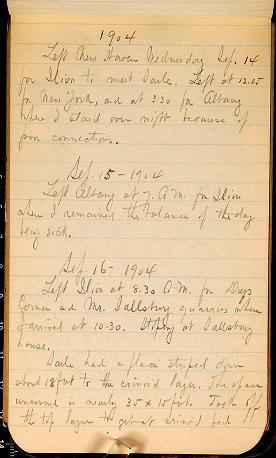 1904
Left New Haven Wednesday Sep. 14
for Ilion to meet Daile. Left at 12.05
for New York, and at 3:30 for Albany
where I staid over night because of
poor connections.
Sep. 15 - 1904
Left Albany at 7. A.M. for Ilion
where I remained the balance of the day
being sick.
Sep. 16 - 1904
Left Ilion at 8.30 A.M. for Days
Corner and Mr. Sallsburg quarries where
I arrived at 10.30. Stoping at Sallsburg
house.
Daile had a place striped down
about 18 feet to the crinoid layer. The space
uncovered is nearly 35 x 15 feet. Took off
the top layer to get at crinoid bed